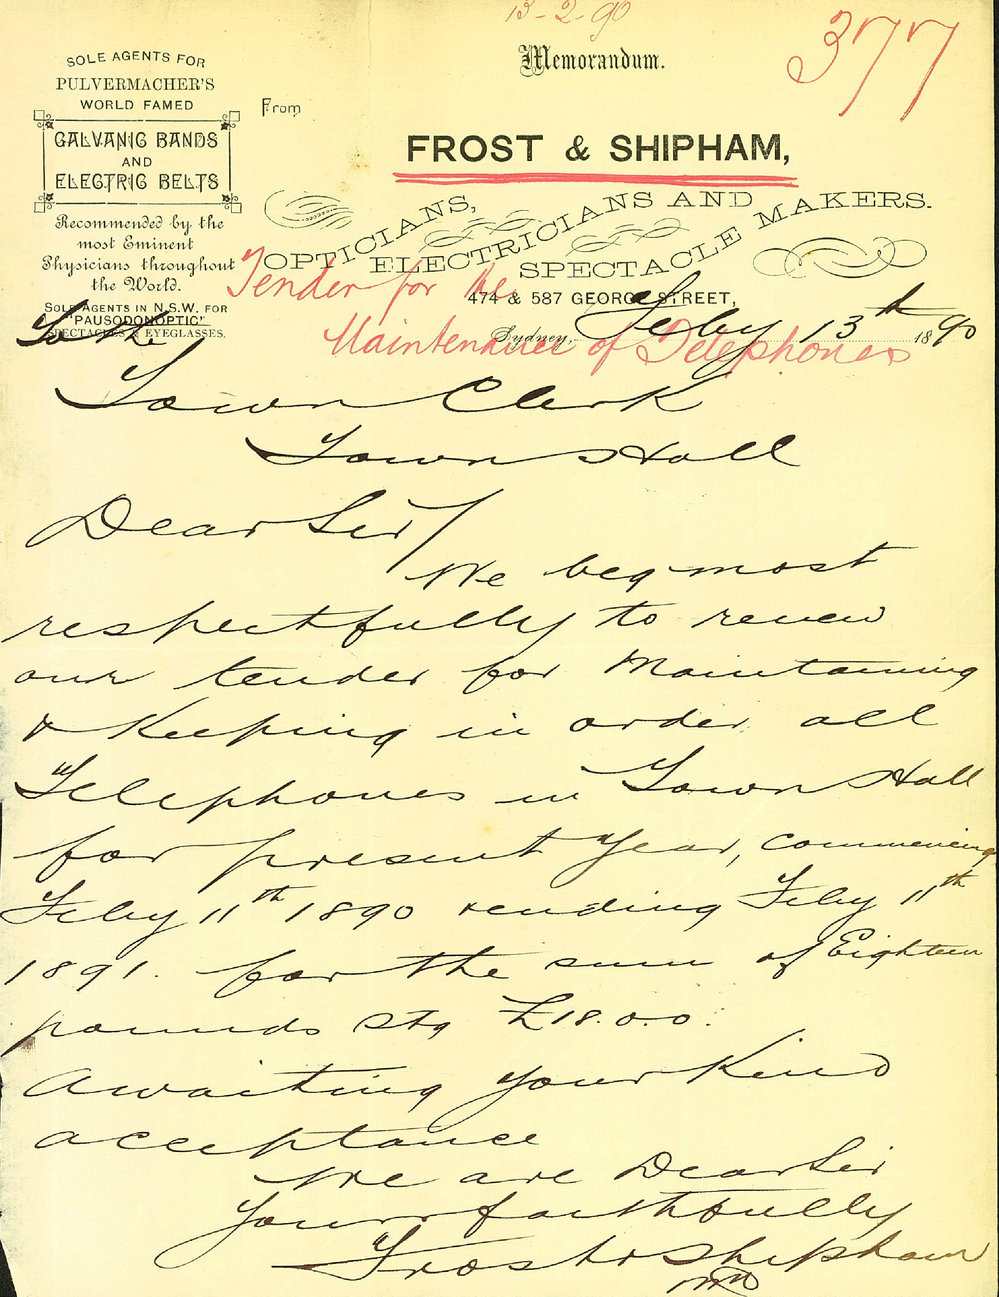 13-2-90
377
Memorandum.
SOLE AGENTS FOR
PULVERMACHER'S
WORLD FAMED
GALVANIC BANDS
AND
ELECTRIC BELTS
Recommended by the
most Eminent
Physicians throughout
the World.
SOLE AGENTS IN N.S.W. FOR
"PAUSODONOPTIC"
SPECTACLES & EYEGLASSES.
From
FROST & SHIPHAM,
OPTICIANS,
ELECTRICIANS AND
SPECTACLE MAKERS.
474 & 587 GEORGE STREET,
Tender for the
Maintenance of Telephones
Sydney, Feby 13th 1890
To the
Town Clerk
Town Hall
Dear Sir/
We beg most
respectfully to renew
our tender for Maintaining
& Keeping in order all
Telephones in Town Hall
for present Year, commencing
Feby 11th 1890 & ending Feby 11th
1891. for the sum of Eighteen
pounds stg £18.0.0.
Awaiting your Kind
acceptance
We are Dear Sir
Yours faithfully
Frost & Shipham